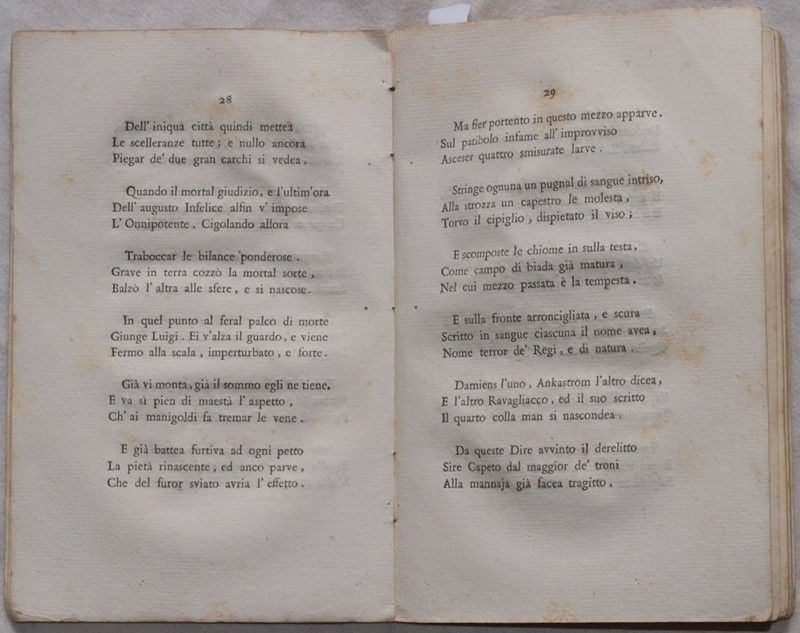 28
Dell' iniqua città quindi mettea
Le scelleranze tutte; e nullo ancora
Piegar de' due gran carchi si vedea.
Quando il mortal giudizio, e l'ultim'ora
Dell' augusto Infelice alfin v' impose
L' Onnipotente. Cigolando allora
Traboccar le bilance ponderose.
Grave in terra cozzò la mortal sorte,
Balzò l' altra alle sfere, e si nascose.
In quel punto al feral palco di morte
Giunge Luigi. Ei v'alza il guardo, e viene
Fermo alla scala, imperturbato, e forte.
Già vi monta, già il sommo egli ne tiene,
E va sì pien di maestà l' aspetto,
Ch' ai manigoldi fa tremar le vene.
E già battea furtiva ad ogni petto
La pietà rinascente, ed anco parve,
Che del furor sviato avria l' effetto.
29
Ma fier portento in questo mezzo apparve.
Sul patibolo infame all' improvviso
Asceser quattro smisurate larve.
Stringe ognuna un pugnal di sangue intriso,
Alla strozza un capestro le molesta,
Torvo il cipiglio, dispietato il viso;
E scomposte le chiome in sulla testa,
Come campo di biada già matura,
Nel cui mezzo passata è la tempesta.
E sulla fronte arroncigliata, e scura
Scritto in sangue ciascuna il nome avea,
Nome terror de' Regi, e di natura.
Damiens l'uno, Ankastrom l'altro dicea,
E l'altro Ravagliacco, ed il suo scritto
Il quarto colla man si nascondea.
Da queste Dire avvinto il derelitto
Sire Capeto dal maggior de' troni
Alla mannaja già facea tragitto.